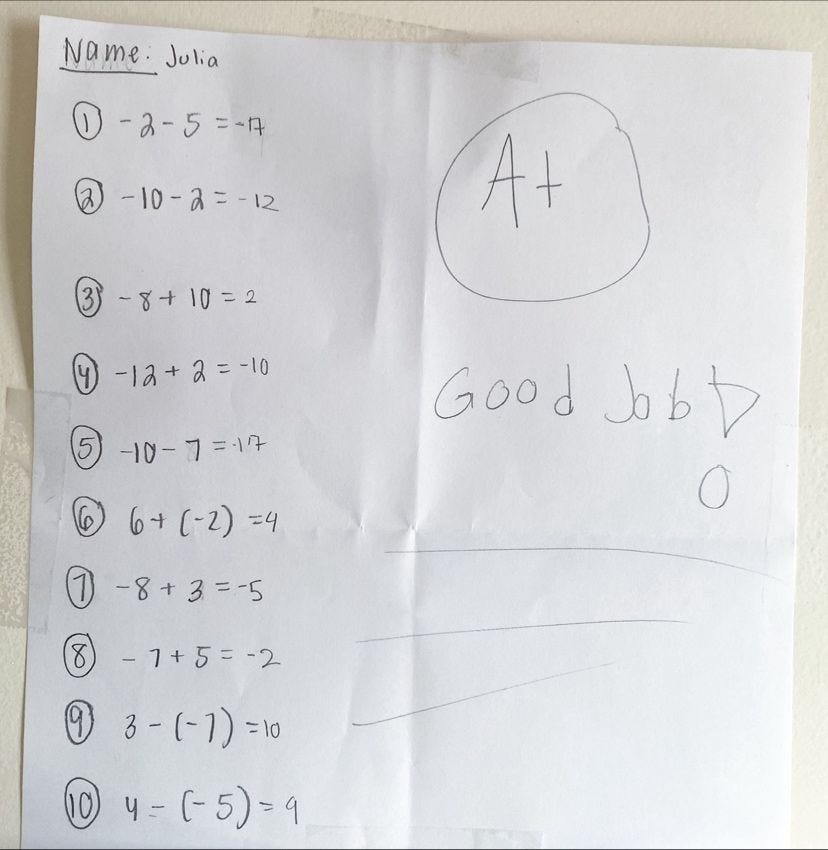 Name: Julia
① -2 - 5 = -17
② -10 - 2 = -12
③ -8 + 10 = 2
④ -12 + 2 = -10
⑤ -10 - 7 = -17
⑥ 6 + (-2) = 4
⑦ -8 + 3 = -5
⑧ -7 + 5 = -2
⑨ 3 - (-7) = 10
⑩ 4 - (-5) = 9
A+
Good Job!